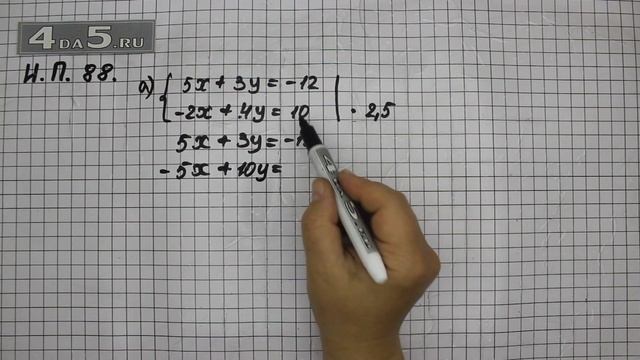 4DA5.RU
Н.П. 88.
а) { 5x + 3y = -12
-2x + 4y = 10 | · 2,5
5x + 3y =
- 5x + 10y =